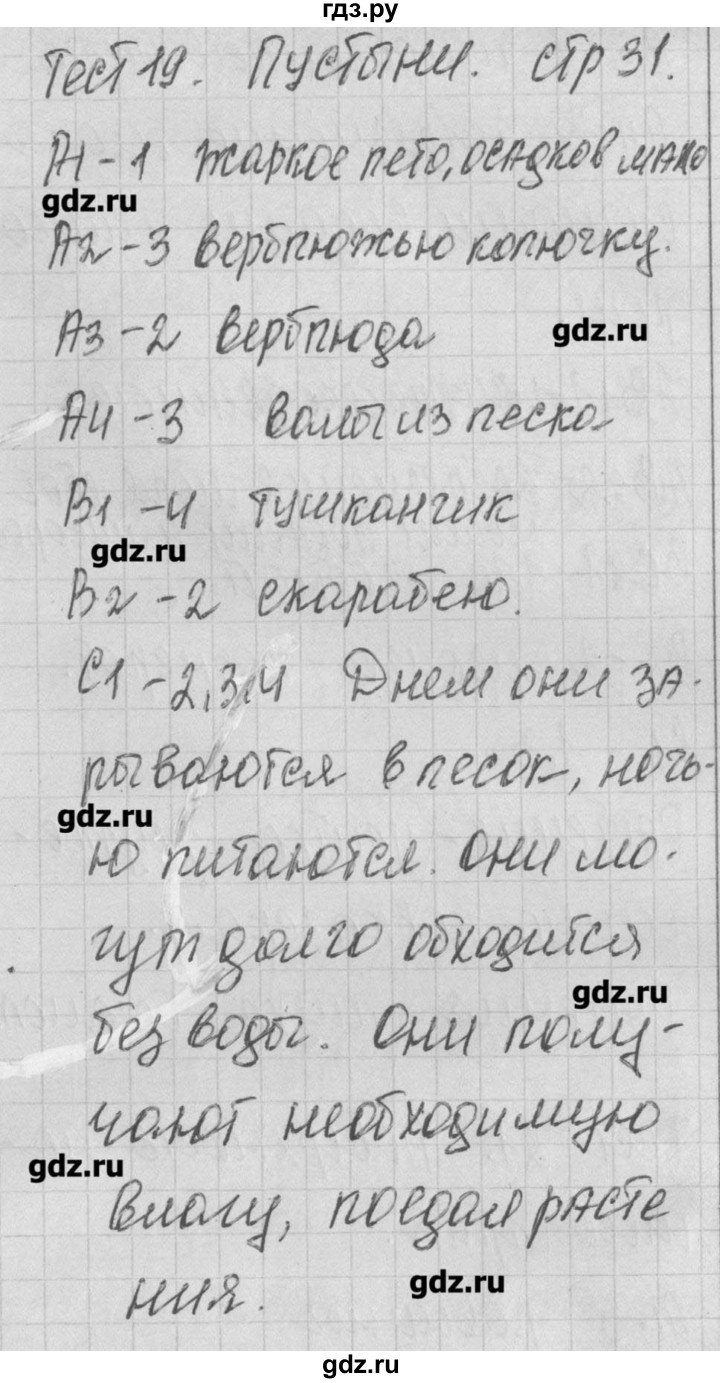 гдз.ру
Тест 19. Пустыни. стр 31.
А1 - 1 жаркое лето, осадков мало
gdz.ru
А2 - 3 верблюжью колючку.
А3 - 2 верблюда
gdz.ru
А4 - 3 валы из песка
В1 - 4 тушканчик
gdz.ru
В2 - 2 скарабею.
С1 - 2,3,4 Днем они за-
рываются в песок, ночь-
gdz.ru
ю питаются. Они мо-
гут долго обходится
gdz.ru
без воды. Они полу-
чают необходимую
gdz.ru
влагу, поедая расте
ния.
gdz.ru
gdz.ru